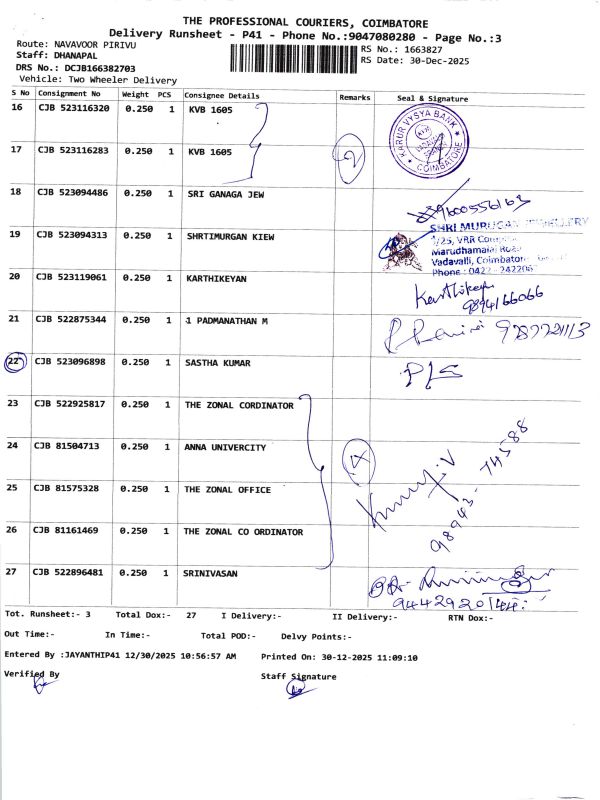 THE PROFESSIONAL COURIERS, COIMBATORE
Delivery Runsheet - P41 - Phone No.:9047080280 - Page No.:3
Route: NAVAVOOR PIRIVU
RS No.: 1663827
Staff: DHANAPAL
RS Date: 30-Dec-2025
DRS No.: DCJB166382703
Vehicle: Two Wheeler Delivery
S No Consignment No Weight PCS Consignee Details Remarks Seal & Signature
16 CJB 523116320 0.250 1 KVB 1605
KARUR VYSYA BANK
COIMBATORE
17 CJB 523116283 0.250 1 KVB 1605 2
18 CJB 523094486 0.250 1 SRI GANAGA JEW
9600556163
19 CJB 523094313 0.250 1 SHRTIMURGAN KIEW
SHRI MURUGAN JEWELLERY
Marudhamalai Road
Vadavalli, Coimbatore
Phone : 0422 - 242206
20 CJB 523119061 0.250 1 KARTHIKEYAN
Karthikeyan
9894166066
21 CJB 522875344 0.250 1 1 PADMANATHAN M
22 CJB 523096898 0.250 1 SASTHA KUMAR
23 CJB 522925817 0.250 1 THE ZONAL CORDINATOR
24 CJB 81504713 0.250 1 ANNA UNIVERCITY 4
25 CJB 81575328 0.250 1 THE ZONAL OFFICE
98943-74588
26 CJB 81161469 0.250 1 THE ZONAL CO ORDINATOR
27 CJB 522896481 0.250 1 SRINIVASAN
9442920144
Tot. Runsheet:- 3 Total Dox:- 27 I Delivery:- II Delivery:- RTN Dox:-
Out Time:- In Time:- Total POD:- Delvy Points:-
Entered By :JAYANTHIP41 12/30/2025 10:56:57 AM Printed On: 30-12-2025 11:09:10
Verified By Staff Signature